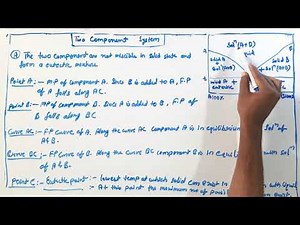 Two Component System
The two component are not miscible in solid state and
form a eutectic mixture
Point A :- M.P of component A. Since B is added to A, F.P
of A falls along AC.
Point B :- M.P of component B. Since A is added to B, F.P of
B falls along BC
Curve AC :- F.P curve of A. Along the curve AC component A is in equilibrium Sol^n of
A & B.
Curve BC :- F.P curve of B. Along the curve BC component B is in equi with Sol^n
of A & B.
Point C :- Eutectic point :- lowest temp at which solid can exist in with liquid
At this point the maximum no of
Sol^n (A+B)
Solid B
+ Sol^n
Solid A +
eutectic